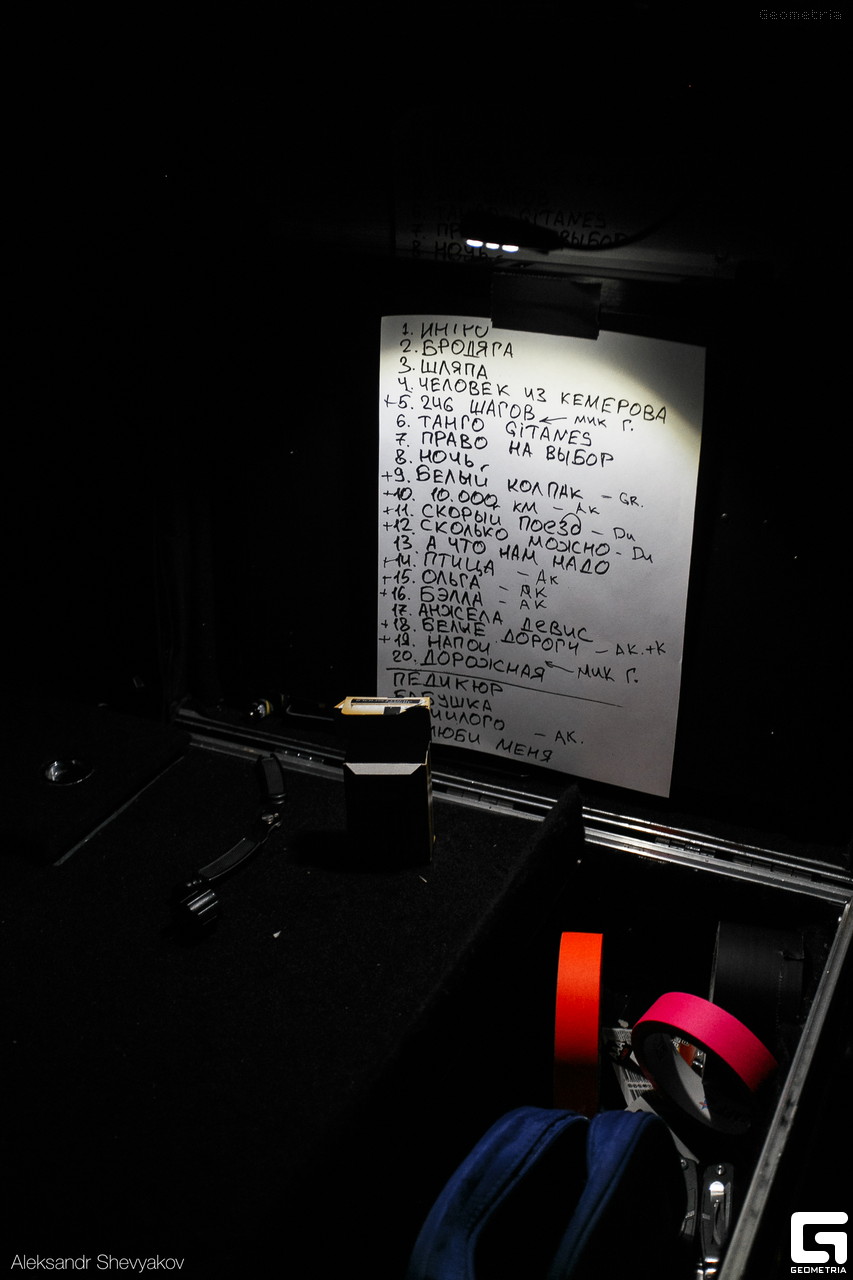 Geometria
GITANES
ВЫБОР
8. НОЧЬ
1. ИНТРО
2. БРОДЯГА
3. ШЛЯПА
4. ЧЕЛОВЕК ИЗ КЕМЕРОВА
+5. 246 ШАГОВ ← МИК Г.
6. ТАНГО GITANES
7. ПРАВО НА ВЫБОР
8. НОЧЬ
+9. БЕЛЫЙ КОЛПАК - GR.
+10. 10.000 КМ - АК
+11. СКОРЫЙ ПОЕЗД - Du
+12. СКОЛЬКО МОЖНО - Du
13. А ЧТО НАМ НАДО
+14. ПТИЦА - АК
+15. ОЛЬГА - АК
+16. БЭЛЛА - АК
17. АНЖЕЛА ДЕВИС
+18. БЕЛЫЕ ДОРОГИ - АК.+К
+19. НАПОИ
20. ДОРОЖНАЯ ← МИК Г.
ПЕДИКЮР
БАБУШКА
МИЛОГО - АК.
ЛЮБИ МЕНЯ
Aleksandr Shevyakov
GEOMETRIA